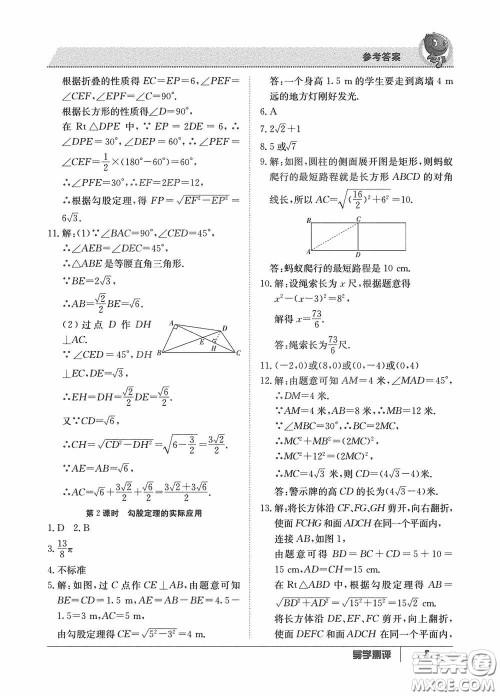 参考答案
根据折叠的性质得 EC=EP=6,∠PEF=
∠CEF,∠EPF=∠C=90°.
根据长方形的性质得∠D=90°.
在 Rt△DPE 中,∵EP=2DE=6,∴
∠DPE=30°,∠DEP=60°,∴∠PEF=
∠CEF=1/2×(180°-60°)=60°.
∴∠PFE=30°,∴EF=2EP=12,
∴根据勾股定理,得 FP=√(EF²-EP²)=
6√3.
11.解:(1)∵∠BAC=90°,∠CED=45°,
∴∠AEB=∠DEC=45°,
∴△ABE 是等腰直角三角形.
∵BE=2√3,
∴AB=√2/2 BE=√6.
(2) 过点 D 作 DH
⊥AC.
∵∠CED=45°,DH
⊥EC,DE=√3,
∴EH=DH=√2/2 DE=√6/2.
又∵CD=√6,
∴CH=√(CD²-DH²)=√(6-3/2)=3√2/2.
∵AE=AB=√6,
∴AC=√6+3√2/2+√6/2=(3√2+3√6)/2.
A D E H B C
第 2 课时 勾股定理的实际应用
1.D 2.B
3.13/8 π
4.不标准
5.解:如图,过 C 点作 CE⊥AB,由题意可知
BE=CD=1.5 m,AE=AB-BE=4.5-
1.5=3 m,AC=5 m,
由勾股定理得 CE=√(5²-3²)=4 m.
答:一个身高 1.5 m 的学生要走到离墙 4 m
远的地方灯刚好发光.
6.A
7.2√2+1
8.5 或√7
9.解:如图,圆柱的侧面展开图是矩形,则蚂蚁
爬行的最短路程就是长方形 ABCD 的对角
线长,所以 AC=√((16/2)²+6²)=10.
B C
A D
答:蚂蚁爬行的最短路程是 10 cm.
10.解:设绳索长为 x 尺,根据题意得
x²-(x-3)²=8²,
解得 x=73/6.
答:绳索长为73/6尺.
11.(-2,0)或(8,0)或(0,-4)或(0,4)
12.解:由题意可知 AM=4 米,∠MAD=45°,
∴DM=4 米.
∵AM=4 米,AB=8 米,∴MB=12 米.
∵∠MBC=30°,∴BC=2MC,
∴MC²+MB²=(2MC)²,
∴MC²+12²=(2MC)²,
∴MC=4√3 米,则 CD=(4√3-4)米.
答:警示牌的高 CD 的长为(4√3-4)米.
13.解:将长方体沿 CF,FG,GH 剪开,向右翻折,
使面 FCHG 和面 ADCH 在同一个平面内,
连接 AB,如图 1,
由题意可得 BD=BC+CD=5+10=
15 cm,AD=CH=15 cm.
在 Rt△ABD 中,根据勾股定理得 AB=
√(BD²+AD²)=√(15²+15²)=15√2 cm.
将长方体沿 DE,EF,FC 剪开,向上翻折,
使面 DEFC 和面 ADCH 在同一个平面内,
易学测评